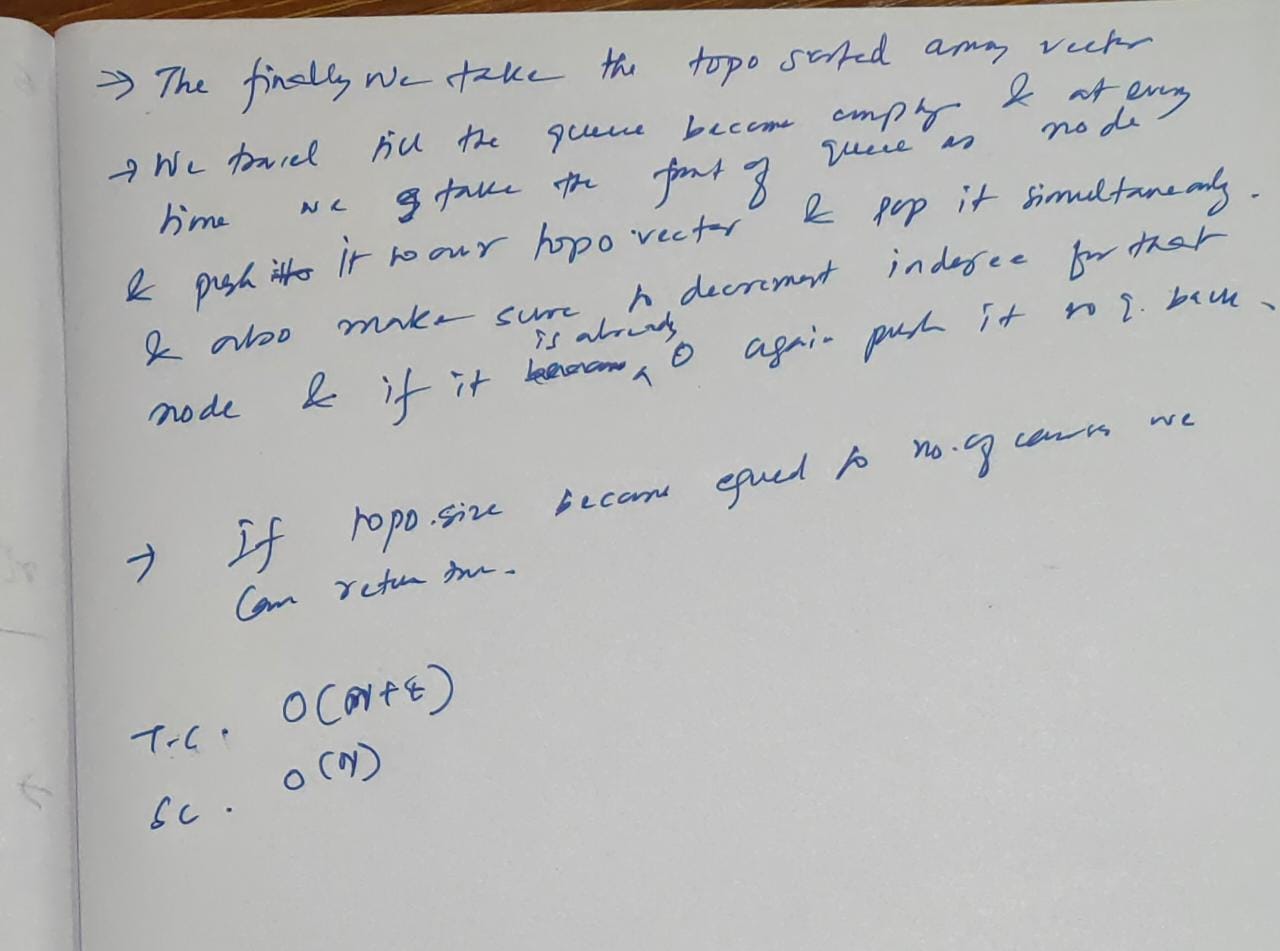 → The finally we take the topo sorted array vector
→ We travel till the queue become empty & at every
time we take the front of queue as node
& push it to our topo vector & pop it simultaneously.
& also make sure to decrement indegree for that
node & if it is already 0 again push it to q. back.
→ If topo.size became equal to no. of courses we
Can return true.
T.C. O(N+E)
SC. O(N)